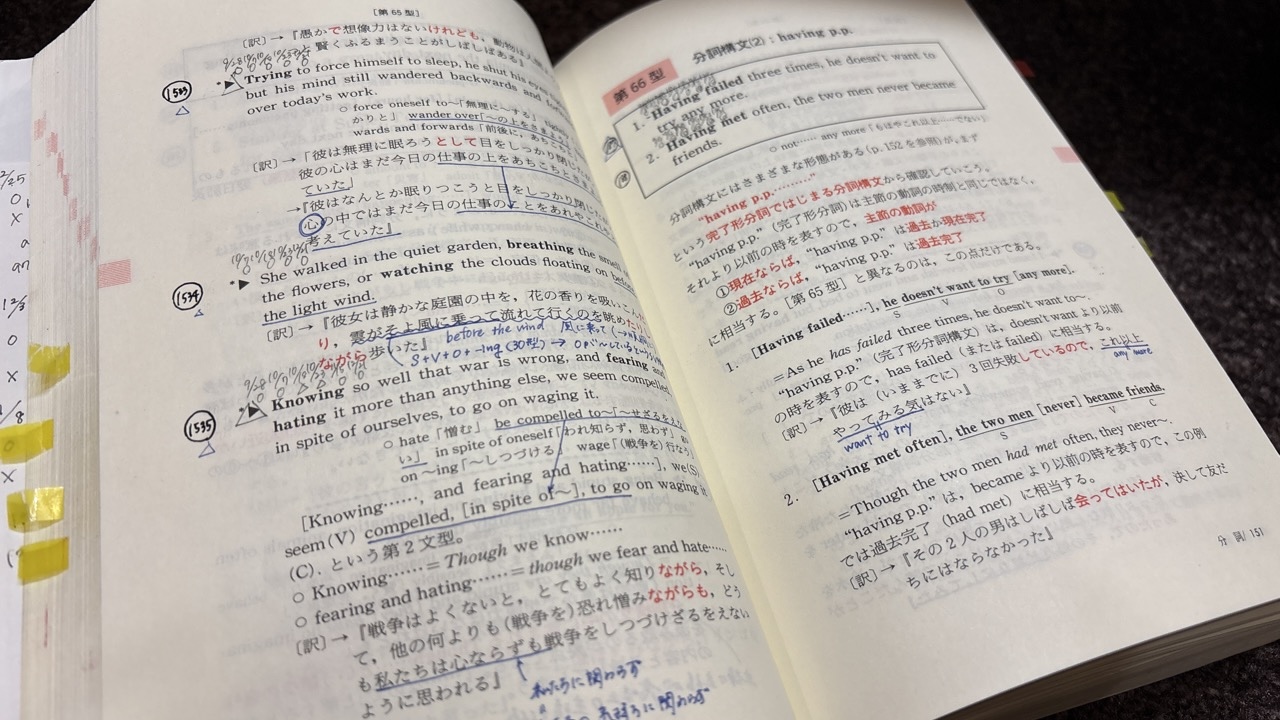 [第65型]
〔訳〕→『愚かで想像力はないけれども，動物は
賢くふるまうことがしばしばある』
1533
Trying to force himself to sleep, he shut his eyes
but his mind still wandered backwards and
over today's work.
○ force oneself to~「無理に~する」
かりと」 wander over「~の上をさまよ
wards and forwards「前後に，あちこち
〔訳〕→『彼は無理に眠ろうとして目をしっかり閉じた
彼の心はまだ今日の仕事の上をあちこちとさま
ていた』
→『彼はなんとか眠りつこうと目をしっかり閉じた
心の中ではまだ今日の仕事のことをあれやこれ
考えていた』
1534
She walked in the quiet garden, breathing the
the flowers, or watching the clouds floating on
the light wind.
〔訳〕→『彼女は静かな庭園の中を，花の香りを吸いこんだ
り，雲がそよ風に乗って流れて行くのを眺めたり
ながら歩いた』
before the wind
S+V+O+-ing (30型) →
1535
Knowing so well that war is wrong, and fearing
hating it more than anything else, we seem compelled
in spite of ourselves, to go on waging it.
○ hate「憎む」 be compelled to~「~せざるをえな
い」 in spite of oneself「われ知らず，思わず」
on ~ing「~しつづける」 wage「(戦争を) 行なう」
[Knowing……, and fearing and hating……], we(S)
seem (V) compelled, [in spite of~], to go on waging it
(C). という第2文型。
○ Knowing……=Though we know……
○ fearing and hating……=though we fear and hate……
〔訳〕→『戦争はよくないと，とてもよく知りながら，そし
て，他の何よりも (戦争を) 恐れ憎みながらも，どう
も私たちは心ならずも戦争をしつづけざるをえない
ように思われる』
私たちに関わらず
第66型 分詞構文(2)：having p.p.
1. Having failed three times, he doesn't want to
try any more.
2. Having met often, the two men never became
friends.
○ not…… any more「もはやこれ以上……でない」
分詞構文にはさまざまな形態がある (p.152を参照) が，まず
"having p.p.………"
という完了形分詞ではじまる分詞構文から確認していこう。
"having p.p." (完了形分詞) は主節の動詞の時制と同じではなく，
それより以前の時を表すので，主節の動詞が
①現在ならば，"having p.p." は過去か現在完了
②過去ならば，"having p.p." は過去完了
に相当する。[第65型] と異なるのは，この点だけである。
1. [Having failed……], he doesn't want to try [any more].
S V O
=As he has failed three times, he doesn't want to~.
"having p.p." (完了形分詞構文) は，doesn't want より以前
の時を表すので，has failed (または failed) に相当する。
〔訳〕→『彼は (いままでに) 3回失敗しているので，これ以上
any more
やってみる気はない』
want to try
2. [Having met often], the two men [never] became friends.
S V C
=Though the two men had met often, they never~.
"having p.p." は，became より以前の時を表すので，この例
では過去完了 (had met) に相当する。
〔訳〕→『その2人の男はしばしば会ってはいたが，決して友だ
ちにはならなかった』
分詞/157